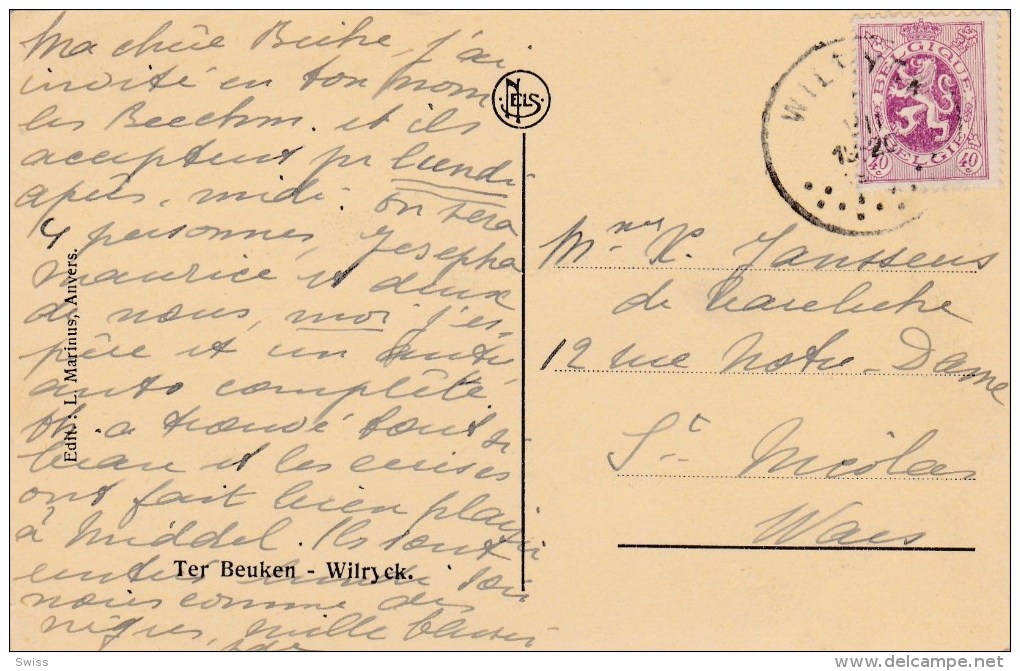 Ma chère
j'ai
invité en ton nom
les Beeckm. et ils
acceptent pr lundi
après, midi. on sera
4 personnes, Josepha
Maurice et deux
de nous, moi j'es-
père et un autre
auto complète
a trouvé tout si
beau et les cerises
ont fait bien plaisir
à Middel. Ils sont
nous comme des
nègres, mille baisers
Edit.: L. Marinus, Anvers.
NELS
Ter Beuken - Wilryck.
WILR
BELGIQUE
BELGIE
40 c
40 c
VII
Janssens
de
12 rue Notre-Dame
St. Nicolas
Waes
Swiss
delcampe.net